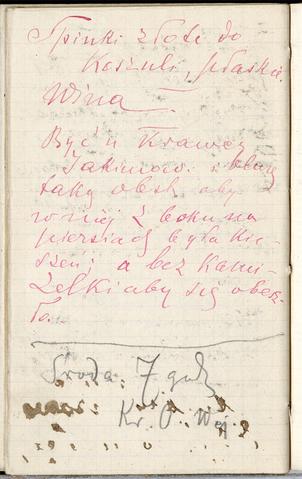 Spinki złote do
Koszuli, płaskie.
Wina —
Być u Krawcy
Jakimow. i bluzę
taką obst. aby
w niej z boku na
piersiach była kie-
szeń; a bez kami-
zelki aby się obesz-
ło.
Środa. 7 godz
Kr. O.